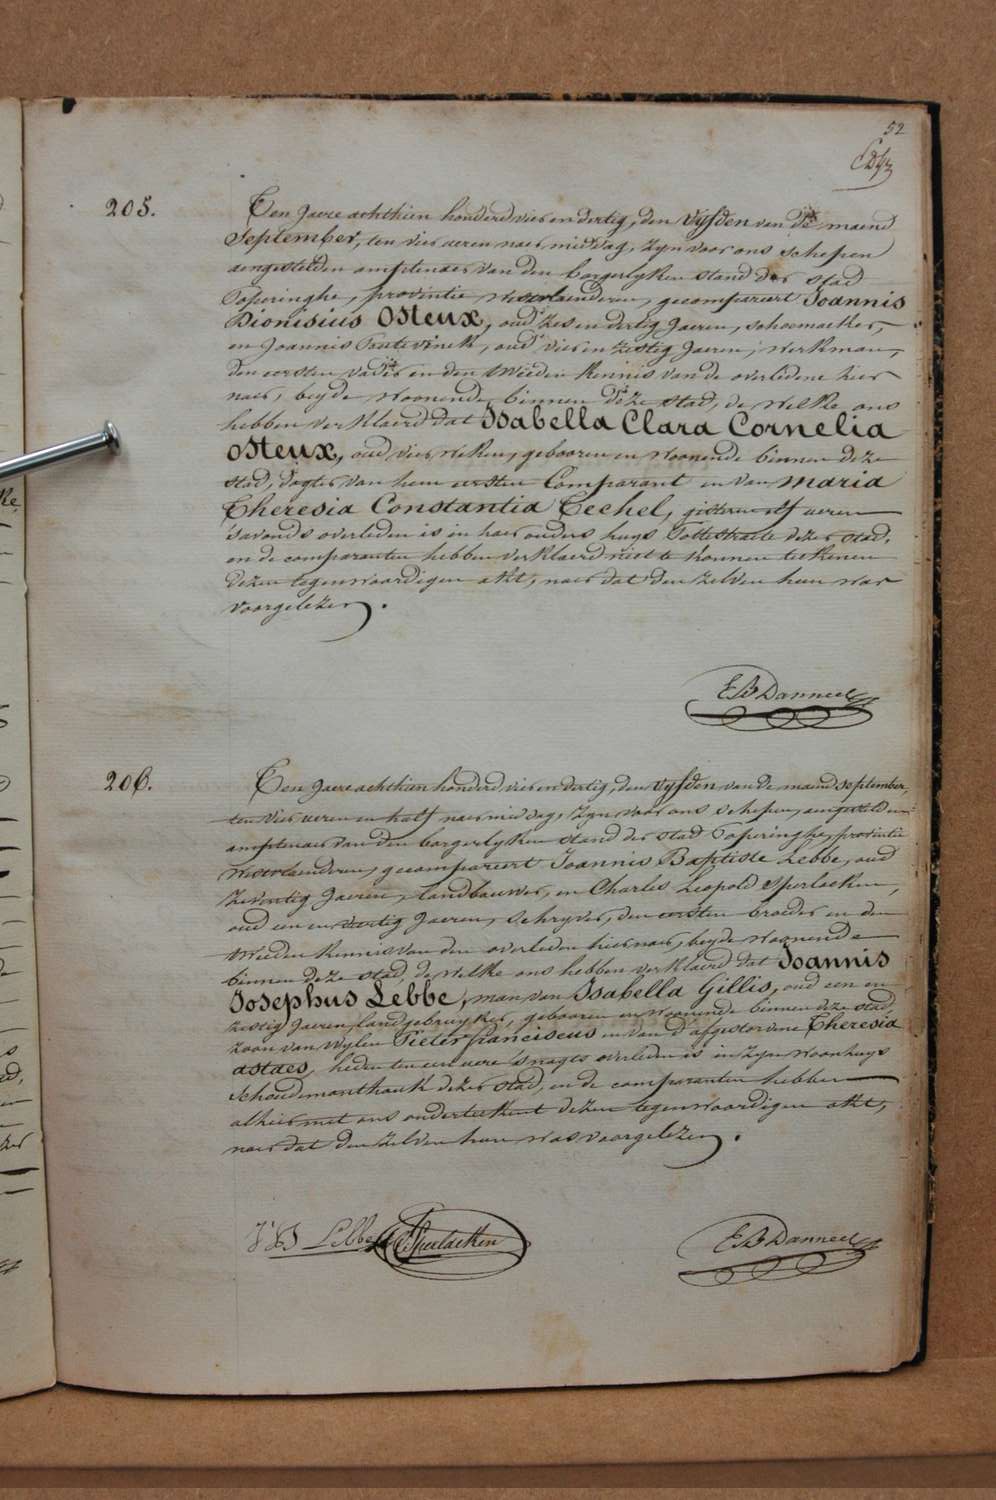 52
205.
Ten Jaere achthien honderd vier en dertig, den vyfden van de maend
September, ten vier ueren naer middag, zyn voor ons schepen
aengestelden amptenaer van den borgerlyken stand der stad
Poperinghe, provintie westvlaenderen, gecompareert Joannis
Dionisius Osteux, oud zes en dertig Jaeren, schoemaeker,
en Joannis, oud vier en zestig Jaeren, werkman,
den eersten vader en den tweeden kennis van de overledene hier
naer, beyde woonende binnen deze stad, de welke ons
hebben verklaerd dat Isabella Clara Cornelia
Osteux, oud vier weken, gebooren en woonende binnen deze
stad, dogter van hem eersten Comparant en van Maria
Theresia Constantia Techel, gisteren elf ueren
s'avonds overleden is in haer ouders huys Pottestraete dezer stad,
en de comparanten hebben verklaerd niet te konnen teekenen
dezen tegenwoordigen akt, naer dat den zelven hun was
voorgelezen.
E B Danneel
206.
Ten Jaere achthien honderd vier en dertig, den vyfden van de maend September,
ten vier ueren en half naer middag, zyn voor ons schepen, aengestelden
amptenaer van den borgerlyken stand der stad Poperinghe, provintie
westvlaenderen, gecompareert Joannis Baptiste Lebbe, oud
zeventig Jaeren, landbouwer, en Charles Leopold Sperlaeken,
oud een en veertig Jaeren, schryver, den eersten broeder en den
tweeden kennis van den overleden hier naer, beyde woonende
binnen deze stad, de welke ons hebben verklaerd dat Joannis
Josephus Lebbe, man van Isabella Gillis, oud een en
zestig Jaeren, landgebruyker, gebooren en woonende binnen deze stad,
zoon van wylen Pieter franciscus en van d'afgestorvene Theresia
astaes, heden ten een uere s'nagts overleden is in zyn woonhuys
Schoudemonthouk dezer stad, en de comparanten hebben
alhier met ons onderteekent dezen tegenwoordigen akt,
naer dat den zelven hun was voorgelezen.
J B Lebbe
Sperlaeken
E B Danneel